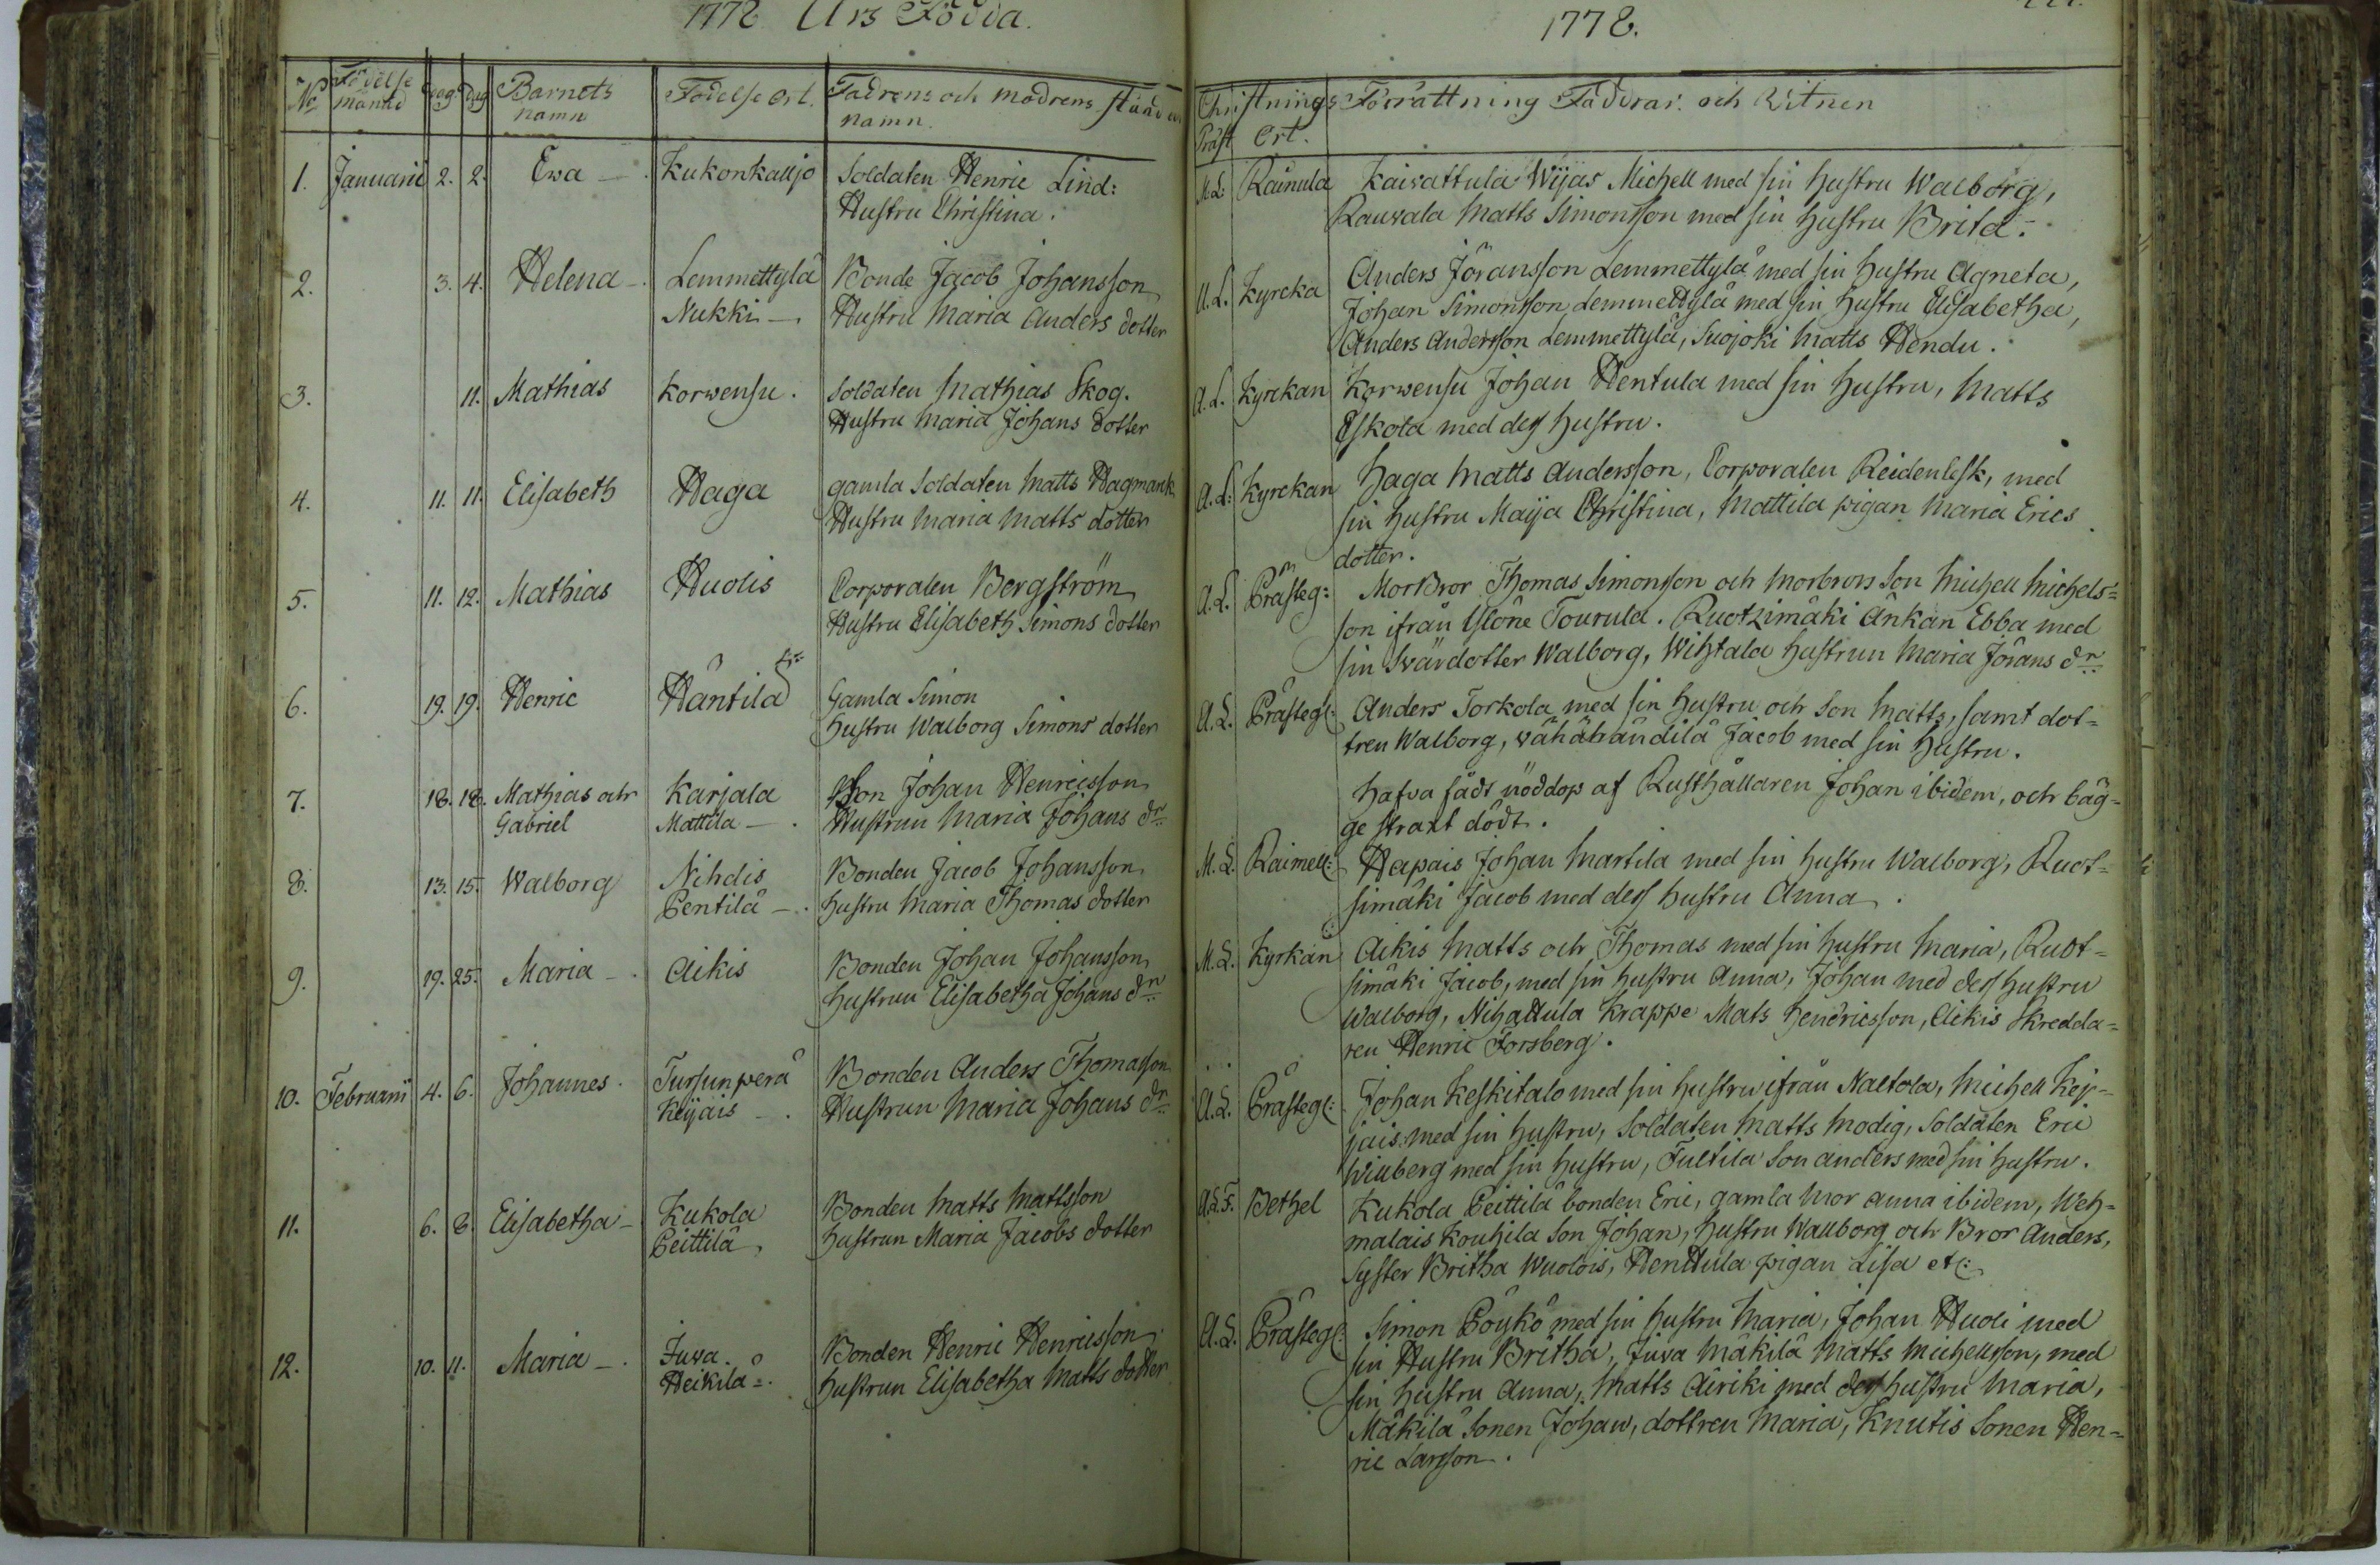 1778 Års Födda.
No Födelse månad Dag Dag Barnets namn Födelse Ort. Fadrens och modrens stånd namn.
1. Januarii 2. 2. Ewa Kukonkalljo Soldaten Henric Lind:
Hustru Christina.
2. 3. 4. Helena Lemmettylä Bonde Jacob Johansson
Nukki Hustru Maria Anders dotter
3. 11. Mathias Korwensu. Soldaten Mathias Skog.
Hustru Maria Johans dotter
4. 11. 11. Elisabeth Haga gamla Soldaten Matts Hagmank
Hustru Maria Matts dotter
5. 11. 12. Mathias Huolis Corporalen Bergström
Hustru Elisabeth Simons dotter
6. 19. 19. Henric Häntilä Gamla Simon
Hustru Walborg Simons dotter
7. 18. 18. Mathias och Karjala Son Johan Henricsson
Gabriel Mattila Hustrun Maria Johans dr
8. 13. 15. Walborg Nihdis Bonden Jacob Johansson
Pentilä hustru Maria Thomas dotter
9. 19. 25. Maria Aikis Bonden Johan Johansson
hustrun Elisabetha Johans dr
10. Februarii 4. 6. Johannes. Tursunperä Bonden Anders Thomasson
Keijais Hustrun Maria Johans dr
11. 6. 8. Elisabetha Kukola Bonden Matts Mattsson
Peittilä hustrun Maria Jacobs dotter
12. 10. 11. Maria Juva. Bonden Henric Henricsson
Heikilä hustrun Elisabetha Matts dotter
1778.
Christnings Förrättning Faddrar och Witnen
Präst Ort.
M. L. Räinula Kaivattula Wijas Michell med sin hustru Walborg,
Rauvala Matts Simonsson med sin hustru Brita.
A. L. Kyrcka Anders Jöransson Lemmettylä med sin hustru Agneta,
Johan Simonsson Lemmettylä med sin hustru Elisabetha,
Anders Andersson Lemmettylä, Suojoki Matts Hendu.
A. L. Kyrckan Korwensu Johan Hentula med sin hustru, Matts
Eskola med des hustru.
A. L. Kyrckan Haga Matts Andersson, Corporalen Reidenlesk, med
sin hustru Maija Christina, Mattila pigan Maria Erics
dotter.
A. L. Prästeg: MorBror Thomas Simonsson och Morbrors Son Michell Michels=
son ifrån Tourula. Ruotzimäki Änkan Ebba med
sin Swärdotter Walborg, Wihtala hustrun Maria Jörans dr
A. L. Prästeg: Anders Torkola med sin hustru och Son Matts, samt dot=
tren Walborg, Jacob med sin hustru.
Hafva fådt nöddop af Rusthållaren Johan ibidem, och båg=
ge straxt dödt.
M. L. Raimell: Hapais Johan Martila med sin hustru Walborg, Ruot=
simäki Jacob med des hustru Anna.
M. L. Kyrkan Aikis Matts och Thomas med sin hustru Maria, Ruot=
simäki Jacob, med sin hustru Anna, Johan med des hustru
Walborg, Nihattula Krappe Mats Hendricsson, Aikis Skredda=
ren Henric Forsberg.
A. L. Prästeg: Johan Keskitalo med sin hustru ifrån Naltola, Michell Kej=
jais med sin hustru, Soldaten Matts Modig, Soldaten Eric
Winberg med sin hustru, Tultila Son Anders med sin hustru.
A. L. F. Bethel Kukola Peittilä bonden Eric, gamla Mor Anna ibidem, Weh=
malais Kouhila Son Johan, hustru Walborg och Bror Anders,
Syster Britha Wuolois, Henttula pigan Lisa etc:
A. L. Prästeg: Simon Pöykö med sin hustru Maria, Johan Huoli med
sin Hustru Britha, Juva Mäkilä Matts Michellsson, med
sin hustru Anna, Matts Airiki med des hustru Maria,
Mäkilä Sonen Johan, dottren Maria, Knutis Sonen Hen=
ric Larsson.